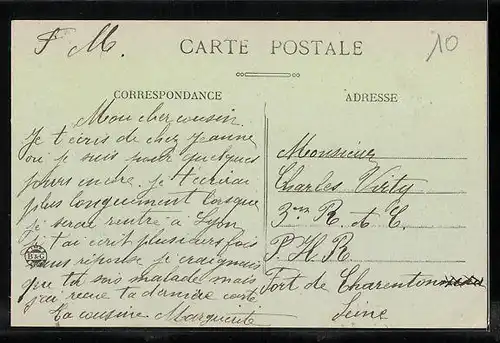 F. M.
10
CARTE POSTALE
CORRESPONDANCE
ADRESSE
Mon cher cousin.
Je t'écris de chez Jeanne
ou je suis pour quelques
jours encore. je t'ecrirai
plus longuement lorsque
je serai rentré a Lyon
Je t'ai ecrit plusieurs fois
sans réponse je craignais
que tu sois malade mais
j'ai recue ta dernière carte
Ta cousine Marguerite
B&G
Monsieur
Charles Virty
3me R. A. C.
P. H. R.
Fort de Charenton
Seine